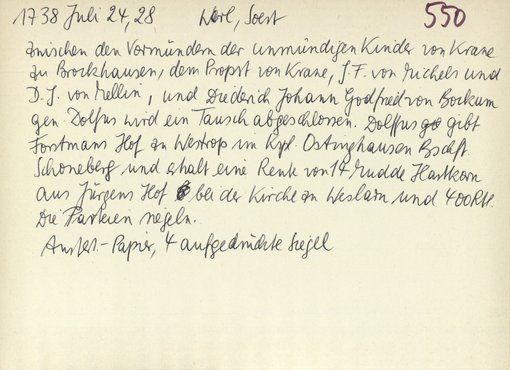 1738 Juli 24, 28 Werl, Soest 550
Zwischen den Vormündern der unmündigen Kinder von Krane
zu Brockhausen, dem Propst von Krane, J.F. von Michels und
D.J. von Mellin, und Diederich Johann Godfried von Bockum
gen Dolffus wird ein Tausch abgeschlossen. Dolffus gibt
Forstmans Hof zu Westrop im Kspl. Ostinghausen Bschft.
Schoneberg und erhält eine Rente von 14 Mudde Hartkorn
aus Jürgens Hof bei der Kirche zu Weslarn und 400 Rtl.
Die Parteien siegeln.
Ausfert.-Papier, 4 aufgedrückte Siegel